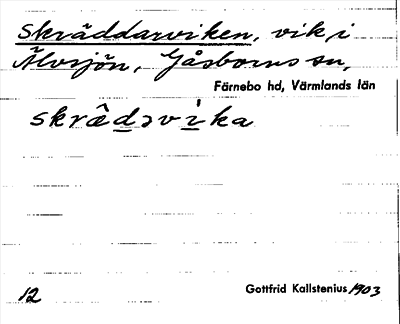 Skräddarviken, vik i
Älvsjön, Gåsborns sn,
Färnebo hd, Värmlands län
skrâdəvìka
12
Gottfrid Kallstenius 1903